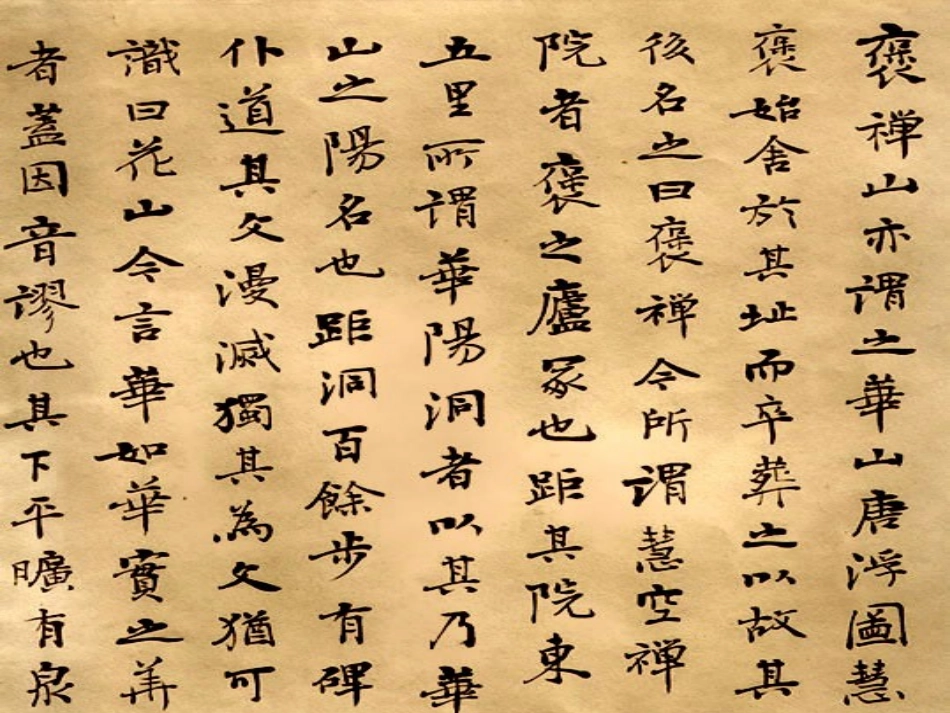 褒禪山亦謂之華山唐浮圖慧
褒始舍於其址而卒葬之以故其
後名之曰褒禪今所謂慧空禪
院者褒之廬冢也距其院東
五里所謂華陽洞者以其乃華
山之陽名也距洞百餘步有碑
仆道其文漫滅獨其為文猶可
識曰花山今言華如華實之華
者蓋因音謬也其下平曠有泉